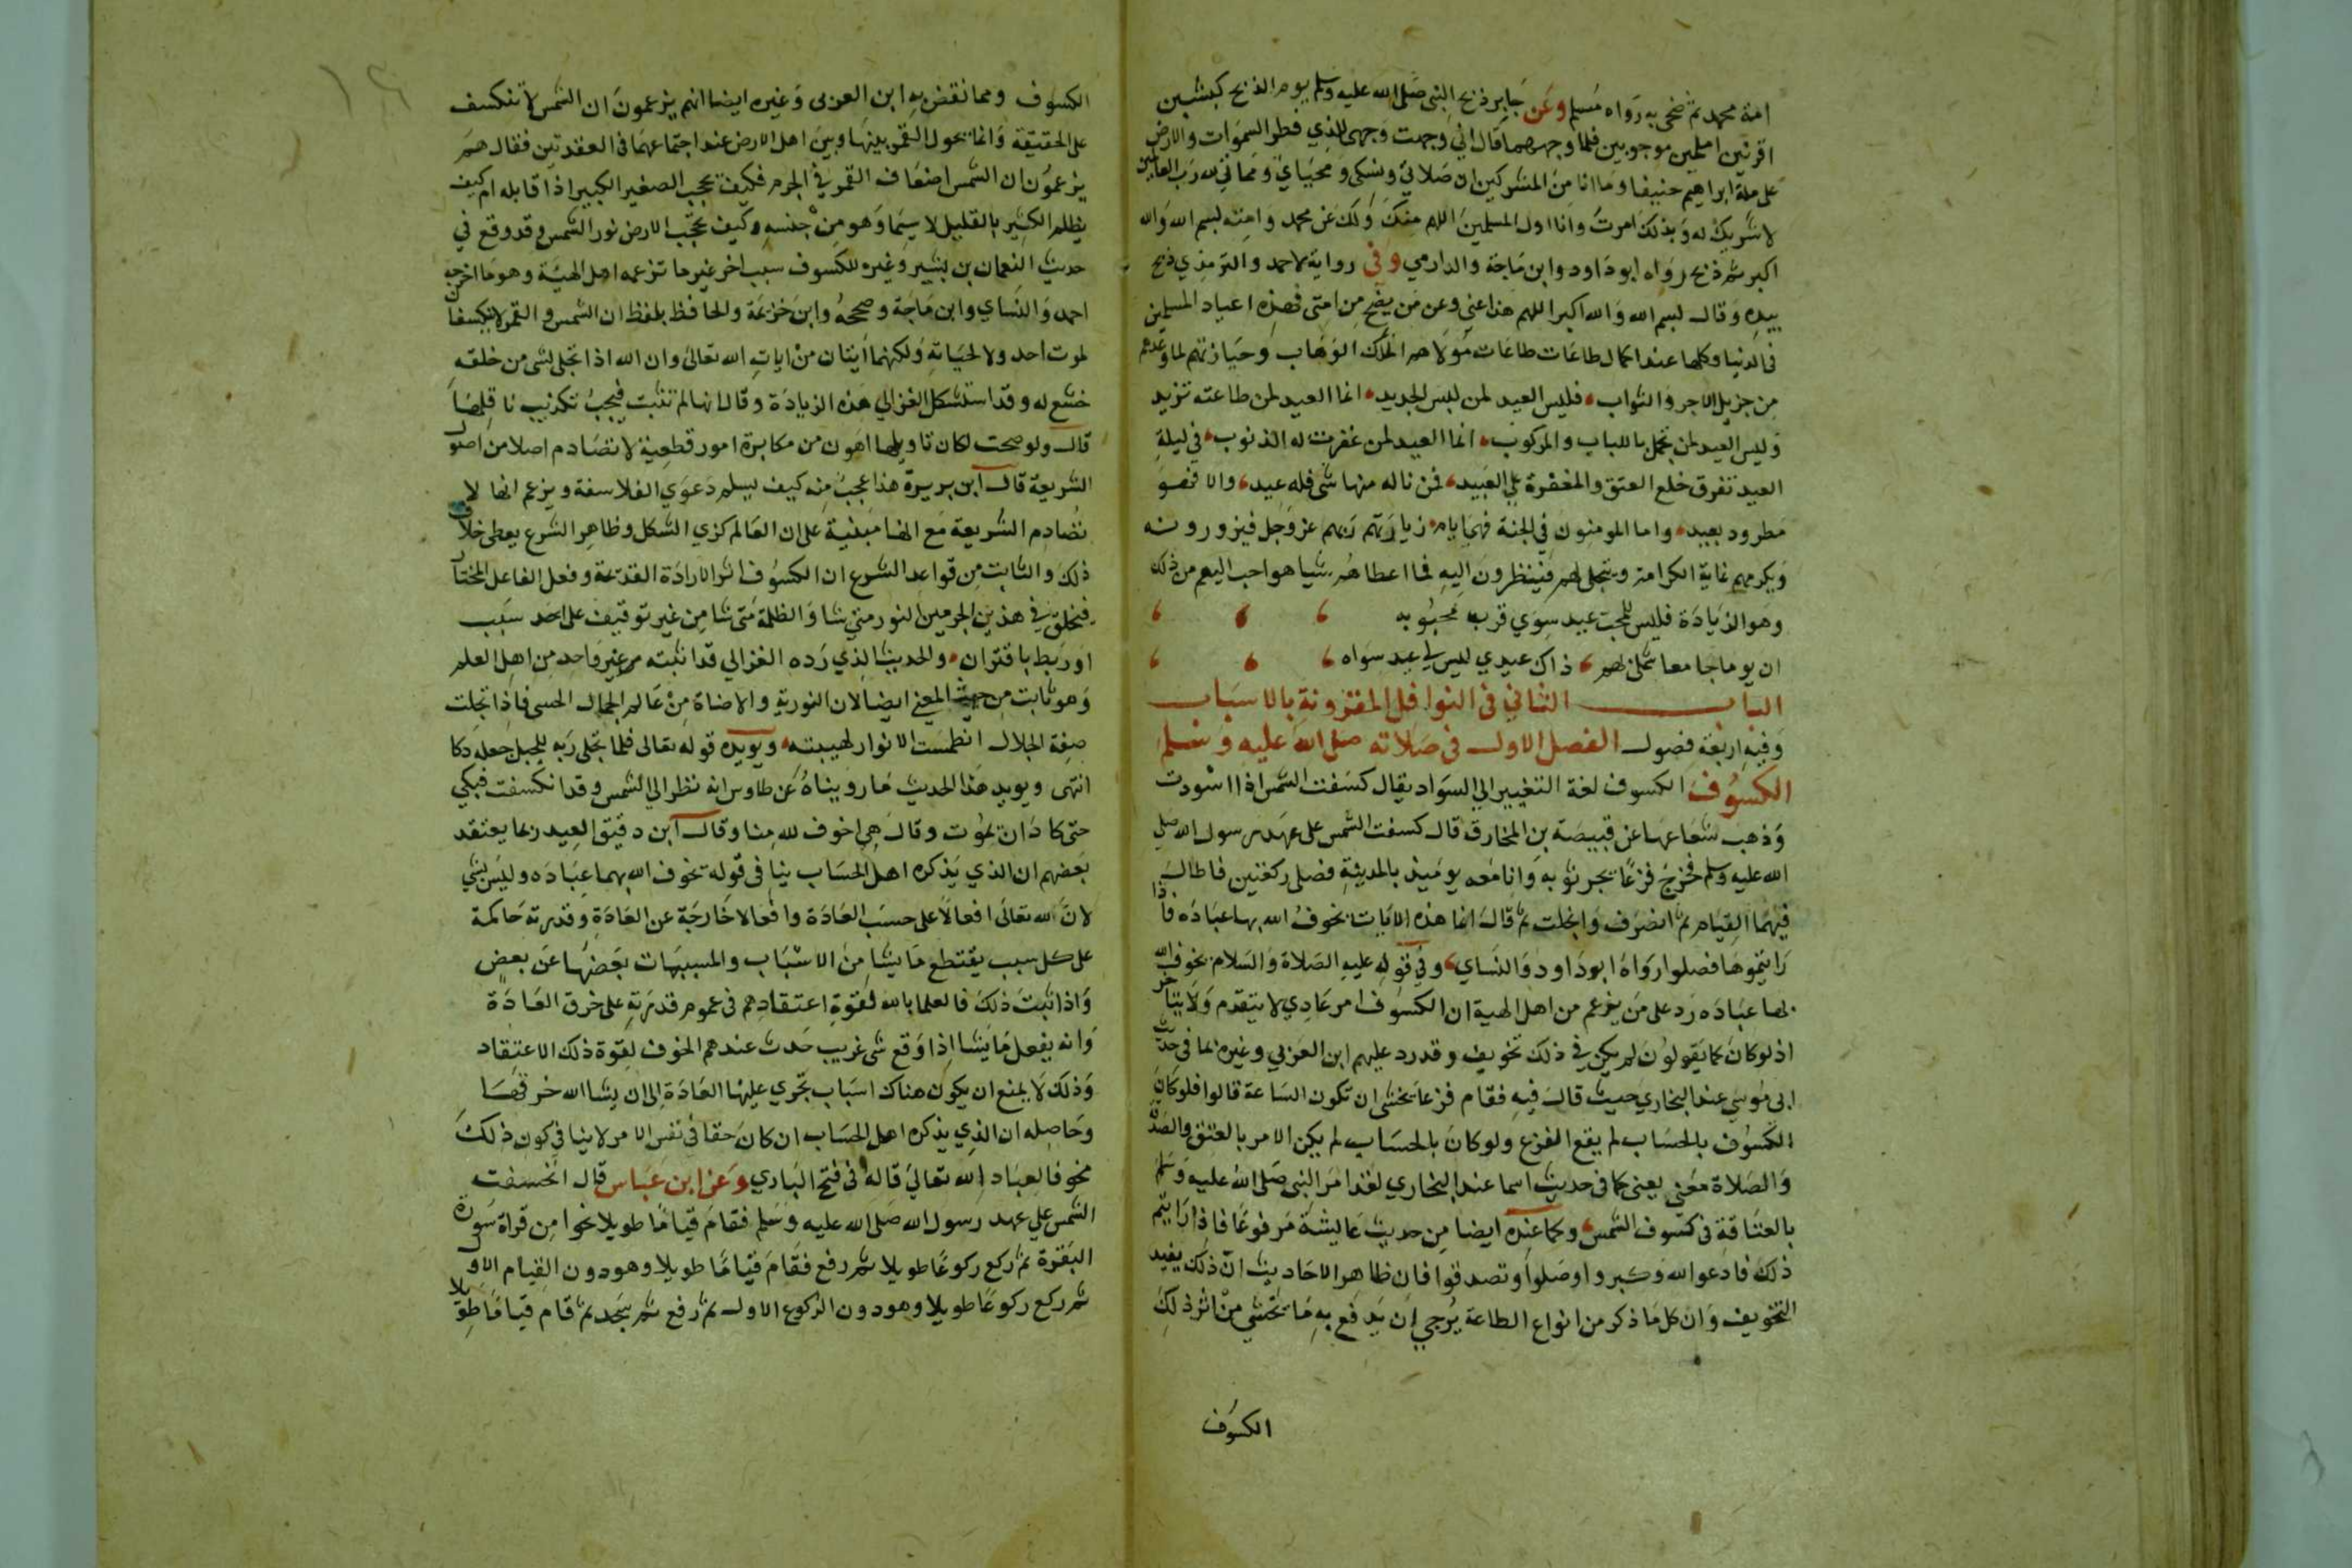 امة محمد ثم ضحى به رواه مسلم وعن جابر ذبح النبى صلى الله عليه وسلم يوم الذبح كبشين
اقرنين املحين موجوءين فلما وجههما قال اني وجهت وجهى للذي فطر السموات والارض
على ملة ابراهيم حنيفا وما انا من المشركين ان صلاتي ونسكى ومحياي ومماتي لله رب العالمين
لا شريك له وبذلك امرت وانا اول المسلمين اللهم منك ولك عن محمد وامته بسم الله والله
اكبر ثم ذبح رواه ابو داود وابن ماجة والدارمي وفى رواية لاحمد والترمذي ذبح
بيده وقال بسم الله والله اكبر اللهم هذا عنى وعن من لم يضح من امتى فهذه اعياد المسلمين
فى الدنيا وكلها عند اكمال طاعات طاعات مولاهم الملك الوهاب وحيازتهم لما وعدهم
من جزيل الاجر والثواب فليس العيد لمن لبس الجديد انما العيد لمن طاعته تزيد
وليس العيد لمن تجمل باللباب والمركوب انما العيد لمن غفرت له الذنوب في ليلة
العيد تفرق خلع العتق والمغفرة على العبيد فمن ناله منها شى فله عيد والا فهو
مطرود بعيد واما المومنون في الجنة فهى ايام زيارتهم ربهم عز وجل فيزورونه
ويكرمهم غاية الكرامة ويتجلى لهم فينظرون اليه فما اعطاهم شيا هو احب اليهم من ذلك
وهو الزيادة فليس للمحب عيد سوي قرب محبوبه
ان يوما جامعا شملى بهم ذاك عيدي ليس لي عيد سواه
الباب الثاني فى النوافل المقرونة بالاسباب
وفيه اربعة فصول الفصل الاول فى صلاته صلى الله عليه وسلم
الكسوف الكسوف لغة التغيير الي السواد يقال كسفت الشمس اذا اسودت
وذهب شعاعها عن قبيصة بن المخارق قال كسفت الشمس على عهد رسول الله صلى
الله عليه وسلم فخرج فزعا يجر ثوبه وانا معه يومئذ بالمدينة فصلى ركعتين فاطال
فيهما القيام ثم انصرف وانجلت ثم قال انما هذه الايات يخوف الله بها عباده فاذا
رايتموها فصلوا رواه ابو داود والنساي وفي قوله عليه الصلاة والسلام يخوف الله
بها عباده رد على من يزعم من اهل الهية ان الكسوف امر عادي لا يتقدم ولا يتاخر
اذ لو كان كما يقولون لم يكن في ذلك تخويف وقد رد عليهم ابن العربي وغيره بما فى حديث
ابى موسي عند البخاري حيث قال فيه فقام فزعا يخشى ان تكون الساعة قالوا فلو كان
الكسوف بالحساب لم يقع الفزع ولو كان بالحساب لم يكن الامر بالعتق والصدقة
والصلاة معنى يعنى كما فى حديث اسما عند البخاري لقد امر النبى صلى الله عليه وسلم
بالعتاقة فى كسوف الشمس وكما عنده ايضا من حديث عايشة مرفوعا فاذا رايتم
ذلك فادعوا الله وكبروا وصلوا وتصدقوا فان ظاهر الاحاديث ان ذلك يفيد
التخويف وان كل ما ذكر من انواع الطاعة يرجي ان يدفع به ما يخشي من اثر ذلك
الكسوف
الكسوف ومما نقض به ابن العربى وغيره ايضا انهم يزعمون ان الشمس لا تنكسف
على الحقيقة وانما يحول القمر بينها وبين اهل الارض عند اجتماعهما فى العقدتين فقال هم
يزعمون ان الشمس اضعاف القمر في الجرم فكيف يحجب الصغير الكبير اذا قابله ام كيف
يظلم الكثير بالقليل لا سيما وهو من جنسه وكيف تحجب الارض نور الشمس وقد وقع في
حديث النعمان بن بشير وغيره للكسوف سبب اخر غير ما تزعمه اهل الهيئة وهو ما اخرجه
احمد والنساي وابن ماجة وصححه وابن خزيمة والحاكم بلفظ ان الشمس والقمر لا ينكسفان
لموت احد ولا لحياته ولكنهما ايتان من ايات الله تعالى وان الله اذا تجلى لشى من خلقه
خشع له وقد استشكل الغزالي هذه الزيادة وقال انها لم تثبت فيجب تكذيب ناقلها
قال ولو صحت لكان تاويلها اهون من مكابرة امور قطعية لا تصادم اصلا من اصول
الشريعة قال ابن بريرة هذا عجب منه كيف يسلم دعوي الفلاسفة ويزعم انها لا
تصادم الشريعة مع انها مبنية على ان العالم كرى الشكل وظاهر الشرع يعطى خلاف
ذلك والثابت من قواعد الشرع ان الكسوف اثر الارادة القديمة وفعل الفاعل المختار
فيخلق في هذين الجرمين النور متى شا والظلمة متى شا من غير توقيف على احد سبب
او ربط باقتران والحديث الذي رده الغزالي قد اثبته غير واحد من اهل العلم
وهو ثابت من حيث المعنى ايضا لان النورية والاضاة من عالم الجمال الحسى فاذا تجلت
صفة الجلال انطمست الانوار لهيبته ويويده قوله تعالى فلما تجلى ربه للجبل جعله دكا
انتهى ويويد هذا الحديث ما رويناه عن طاوس انه نظر الي الشمس وقد انكسفت فبكي
حتى كاد ان يموت وقال هى اخوف لله منا وقال ابن دقيق العيد ربما يعتقد
بعضهم ان الذي يذكره اهل الحساب ينافى قوله يخوف الله بهما عباده وليس بشي
لان لله تعالى افعالا على حسب العادة وافعالا خارجة عن العادة وقدرته حاكمة
على كل سبب يقتطع ما يشا من الاسباب والمسببات بعضها عن بعض
واذا ثبت ذلك فالعلما بالله لقوة اعتقادهم فى عموم قدرته على خرق العادة
وانه يفعل ما يشا اذا وقع شى غريب حدث عندهم الخوف لقوة ذلك الاعتقاد
وذلك لا يمنع ان يكون هناك اسباب تجري عليها العادة الى ان يشا الله خرقها
وحاصله ان الذي يذكره اهل الحساب ان كان حقا فى نفس الامر لا ينافى كون ذلك
مخوفا لعباد الله تعالي قاله فى فتح الباري وعن ابن عباس قال انخسفت
الشمس علي عهد رسول الله صلى الله عليه وسلم فقام قياما طويلا نحوا من قراة سورة
البقرة ثم ركع ركوعا طويلا ثم رفع فقام قياما طويلا وهو دون القيام الاول
ثم ركع ركوعا طويلا وهو دون الركوع الاول ثم رفع ثم سجد ثم قام قياما طويلا